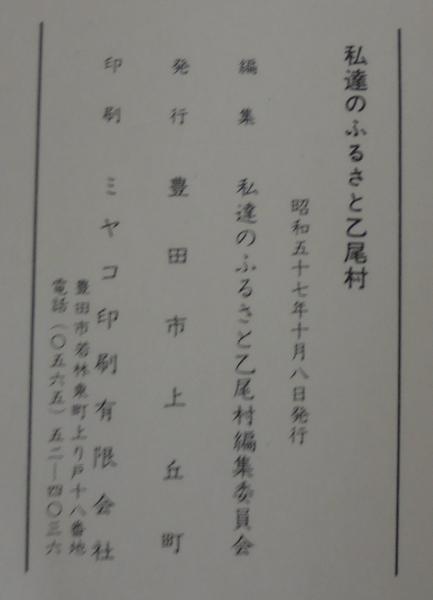 私達のふるさと乙尾村
昭和五十七年十月八日発行
編集 私達のふるさと乙尾村編集委員会
発行 豊田市上丘町
印刷 ミヤコ印刷有限会社
豊田市若林東町上り戸十八番地
電話(〇五六五)五二―四〇三六